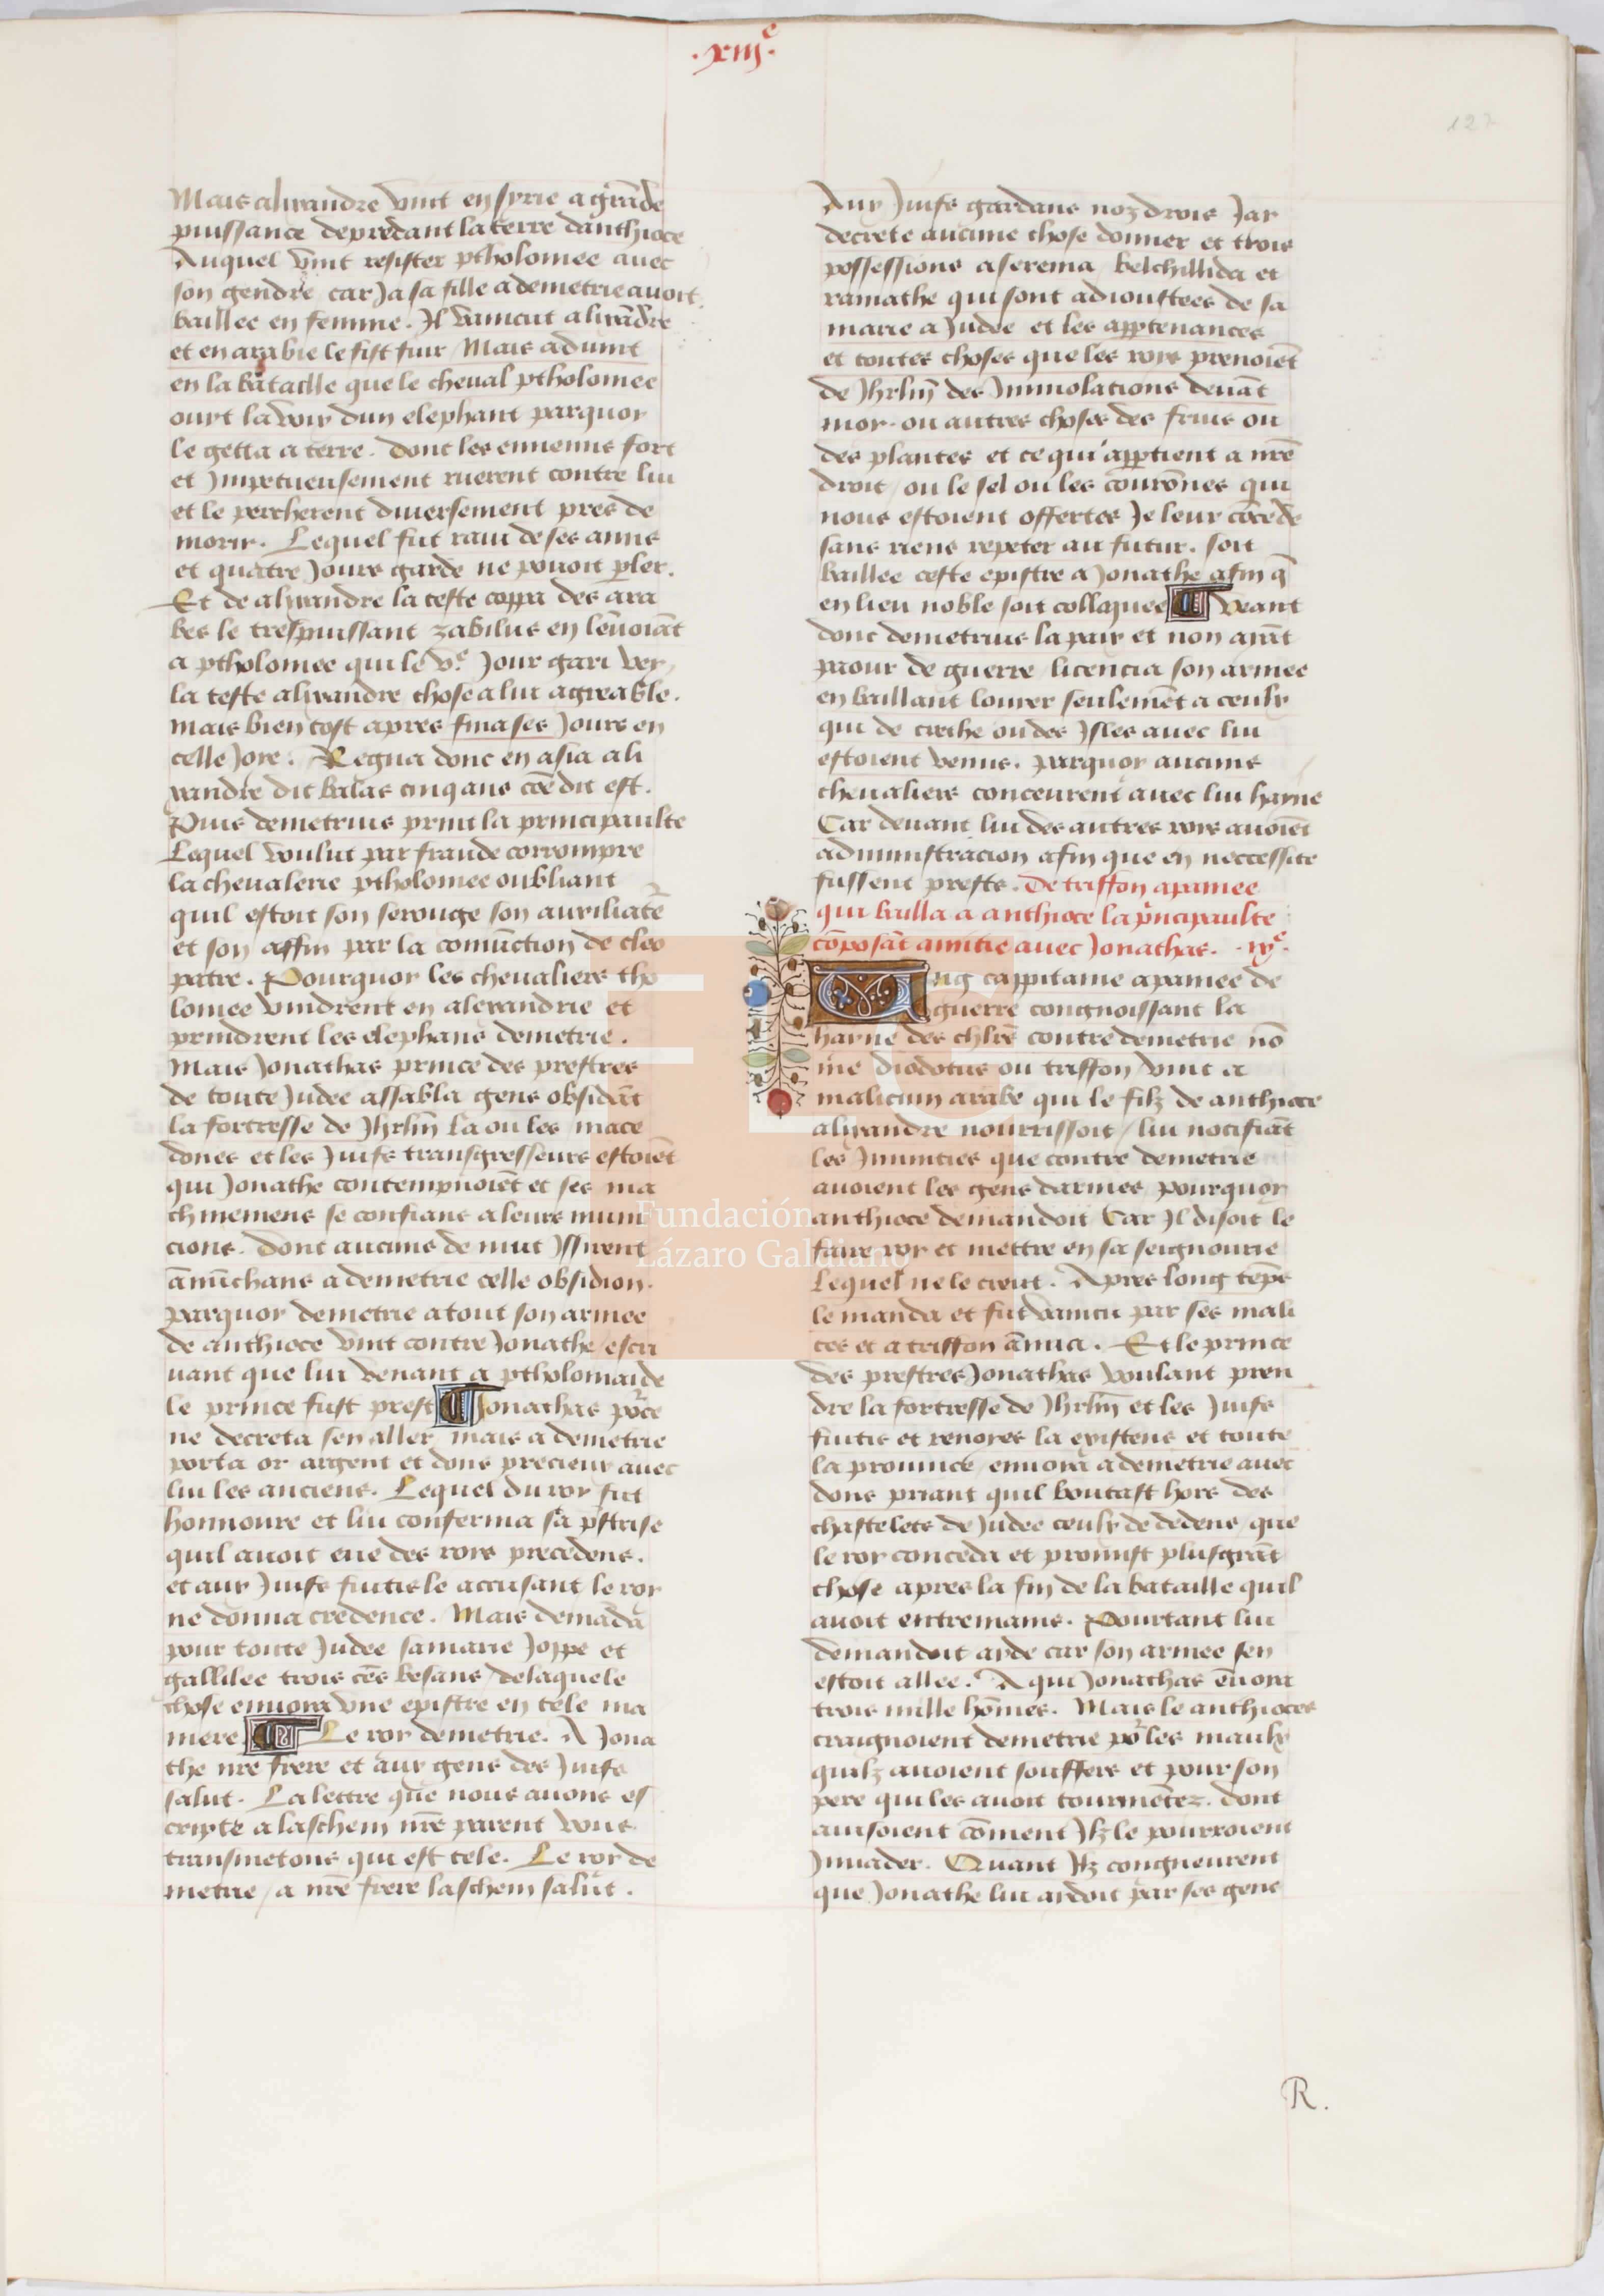 .xiijᵉ.
127
Mais alixandre vint en syrie a grãde
puissance depredant la terre danthioce
Auquel vint resister ptholomee avec
son gendre car Ja sa fille a demetrie avoit
baillee en femme. Il vaincut alixãdre
et en arabie le fist fuir Mais advint
en la bataille que le cheval ptholomee
ouyt la voix dun elephant parquoy
le getta a terre. donc les ennemis fort
et Impetueusement ruerent contre lui
et le percherent diversement pres de
morir. Lequel fut ravi de ses amis
et quatre Jours garde ne povoit pler.
Et de alixandre la teste coppa des ara
bes le trespuissant zabilus en lenvoiãt
a ptholomee qui le vᵉ Jour gari vey
la teste alixandre chose a lui agreable.
mais bien tost apres fina ses Jours en
celle Joye. Regna donc en asia ali
xandre dit balas cinq ans cõe dit est.
Puis demetrius print la principaulte
Lequel voulut par fraude corrompre
la chevalerie ptholomee oubliant
quil estoit son serouge son auxiliate
et son affin par la coniũction de cleo
patre. Pourquoy les chevaliers tho
lomee vindrent en alexandrie et
prindrent les elephans demetrie.
Mais Jonathas prince des prestres
de toute Judee assãbla gens obsidãt
la fortresse de Jhrlm̃ La ou les mace
dones et les Juifs transgresseurs estoiẽt
qui Jonathe contempnoiẽt et ses ma
chinemens se confians a leurs muni
cions. dont aucuns de nuit Issirent
ãnũchans a demetrie celle obsidion.
parquoy demetrie a tout son armee
de anthioce vint contre Jonathe / escri
uant que lui venant a ptholomaide
le prince fust prest Jonathas põce
ne decreta sen aller mais a demetrie
porta or argent et dons precieux avec
lui les anciens. Lequel du roy fut
honnoure et lui conferma sa pstrise
quil avoit eue des roys precedens.
et aux Juifs fuitis le accusant le roy
ne donna credence. Mais demãda
pour toute Judee samarie Joppe et
gallilee trois cẽs besans / de laquele
chose envoia vne epistre en tele ma
niere Le roy demetrie. A Jona
the nr̃e frere et aux gens des Juifs
salut. La lettre que nous avons es
cripte a laschem nr̃e parent vous
transmetons qui est tele. Le roy de
metrie / a nr̃e frere laschem salut.
Aux Juifs gardans noz drois Jay
decrete aucune chose donner et trois
possessions aferema / belchillida et
ramathe qui sont adioustees de sa
marie a Judee et les apptenances
et toutes choses que les roys prenoiẽt
de Jhrlm̃ des Immolacions devãt
moy. ou autres choses des fruis ou
des plantes et ce qui apptient a nr̃e
droit / ou le sel ou les courõnes qui
nous estoient offertes Je leur cõcede
sans riens repeter au futur. soit
baillee ceste epistre a Jonathe afin q̃
en lieu noble soit colloquee Veant
donc demetrius la paix et non ayãt
paour de guerre / licencia son armee
en baillant loyier seulemẽt a ceulx
qui de crethe ou des Isles avec lui
estoient venus. parquoy aucuns
chevaliers conceurent avec lui hayne
Car devant lui des autres roys avoiẽt
administracion afin que en neccessite
fussent prests. De triffon apamee
qui bailla a anthioce la pncipaulte
cõposãt amitie avec Jonathas. .ixᵉ.
Ung cappitaine apamee de
guerre congnoissant la
hayne des chlr̃s contre demetrie nõ
me diodotus ou triffon vint a
malicum arabe qui le filz de anthioce
alixandre nourrissoit / lui notifiãt
les Inimities que contre demetrie
avoient les gens darmes pourquoy
anthioce demandoit Car Il disoit le
faire roy et mettre en sa seignourie
Lequel ne le creut. Apres long tẽps
le manda et fut vaincu par ses mali
ces et a triffon ãnua. Et le prince
des prestres Jonathas voulant pren
dre la fortresse de Jhrlm̃ et les Juifs
fuitis et renoyes la existens et toute
la province / envoia a demetrie avec
dons priant quil boutast hors des
chastelets de Judee ceulx de dedens / que
le roy conceda et promist plus grãt
chose apres la fin de la bataille quil
avoit entremains. Pourtant lui
demandoit ayde car son armee sen
estoit allee. A qui Jonathas ẽvoia
trois mille hõmes. Mais le anthioces
craignoient demetrie pour les maulx
quilz avoient souffers et pour son
pere qui les avoit tourmẽtez. dont
avisoient cõment Ilz le pourroient
Invader. Quant Ilz congneurent
que Jonathe lui aydoit par ses gens
R.
Fundación
Lázaro Galdiano